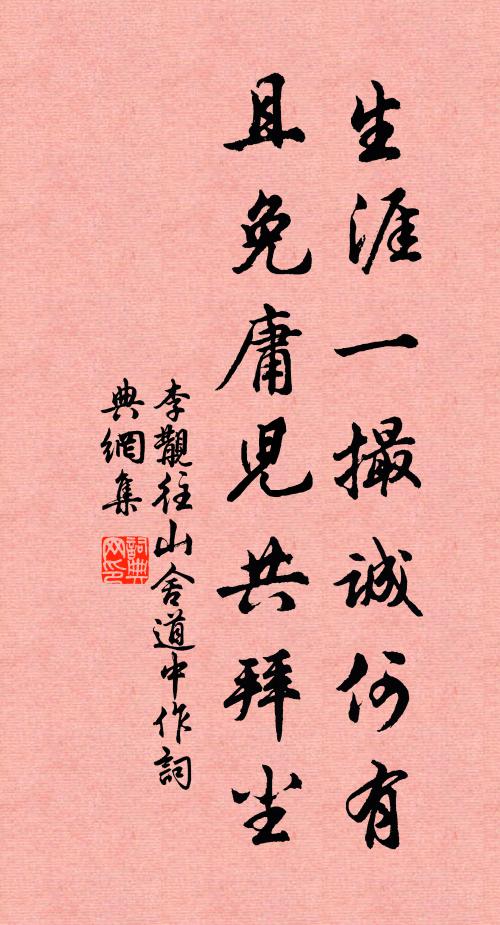 生涯一撮誠何有
且免庸児共拜尘
李觀往山舍道中作詞
典網集
詞典
网印